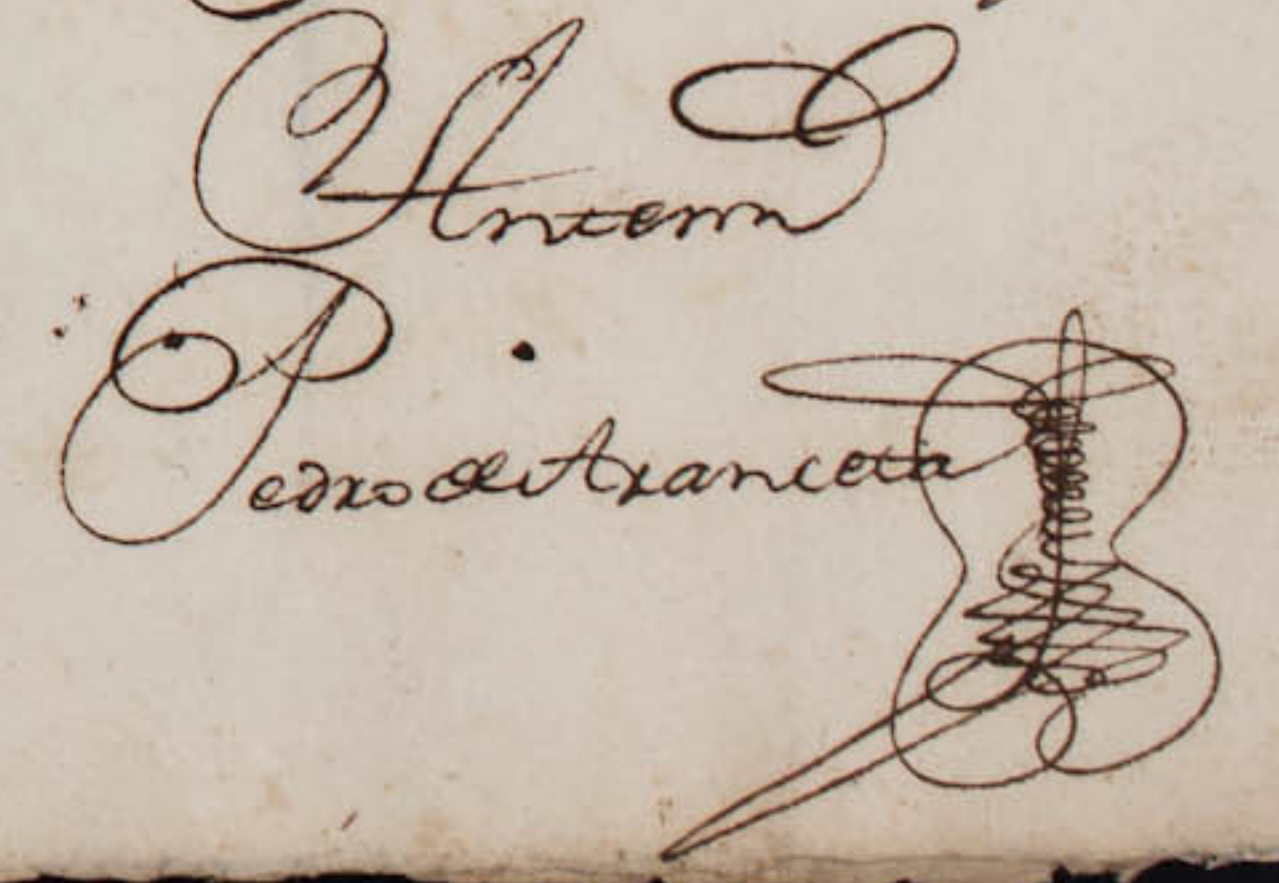 Antemi
Pedro de Aranceta